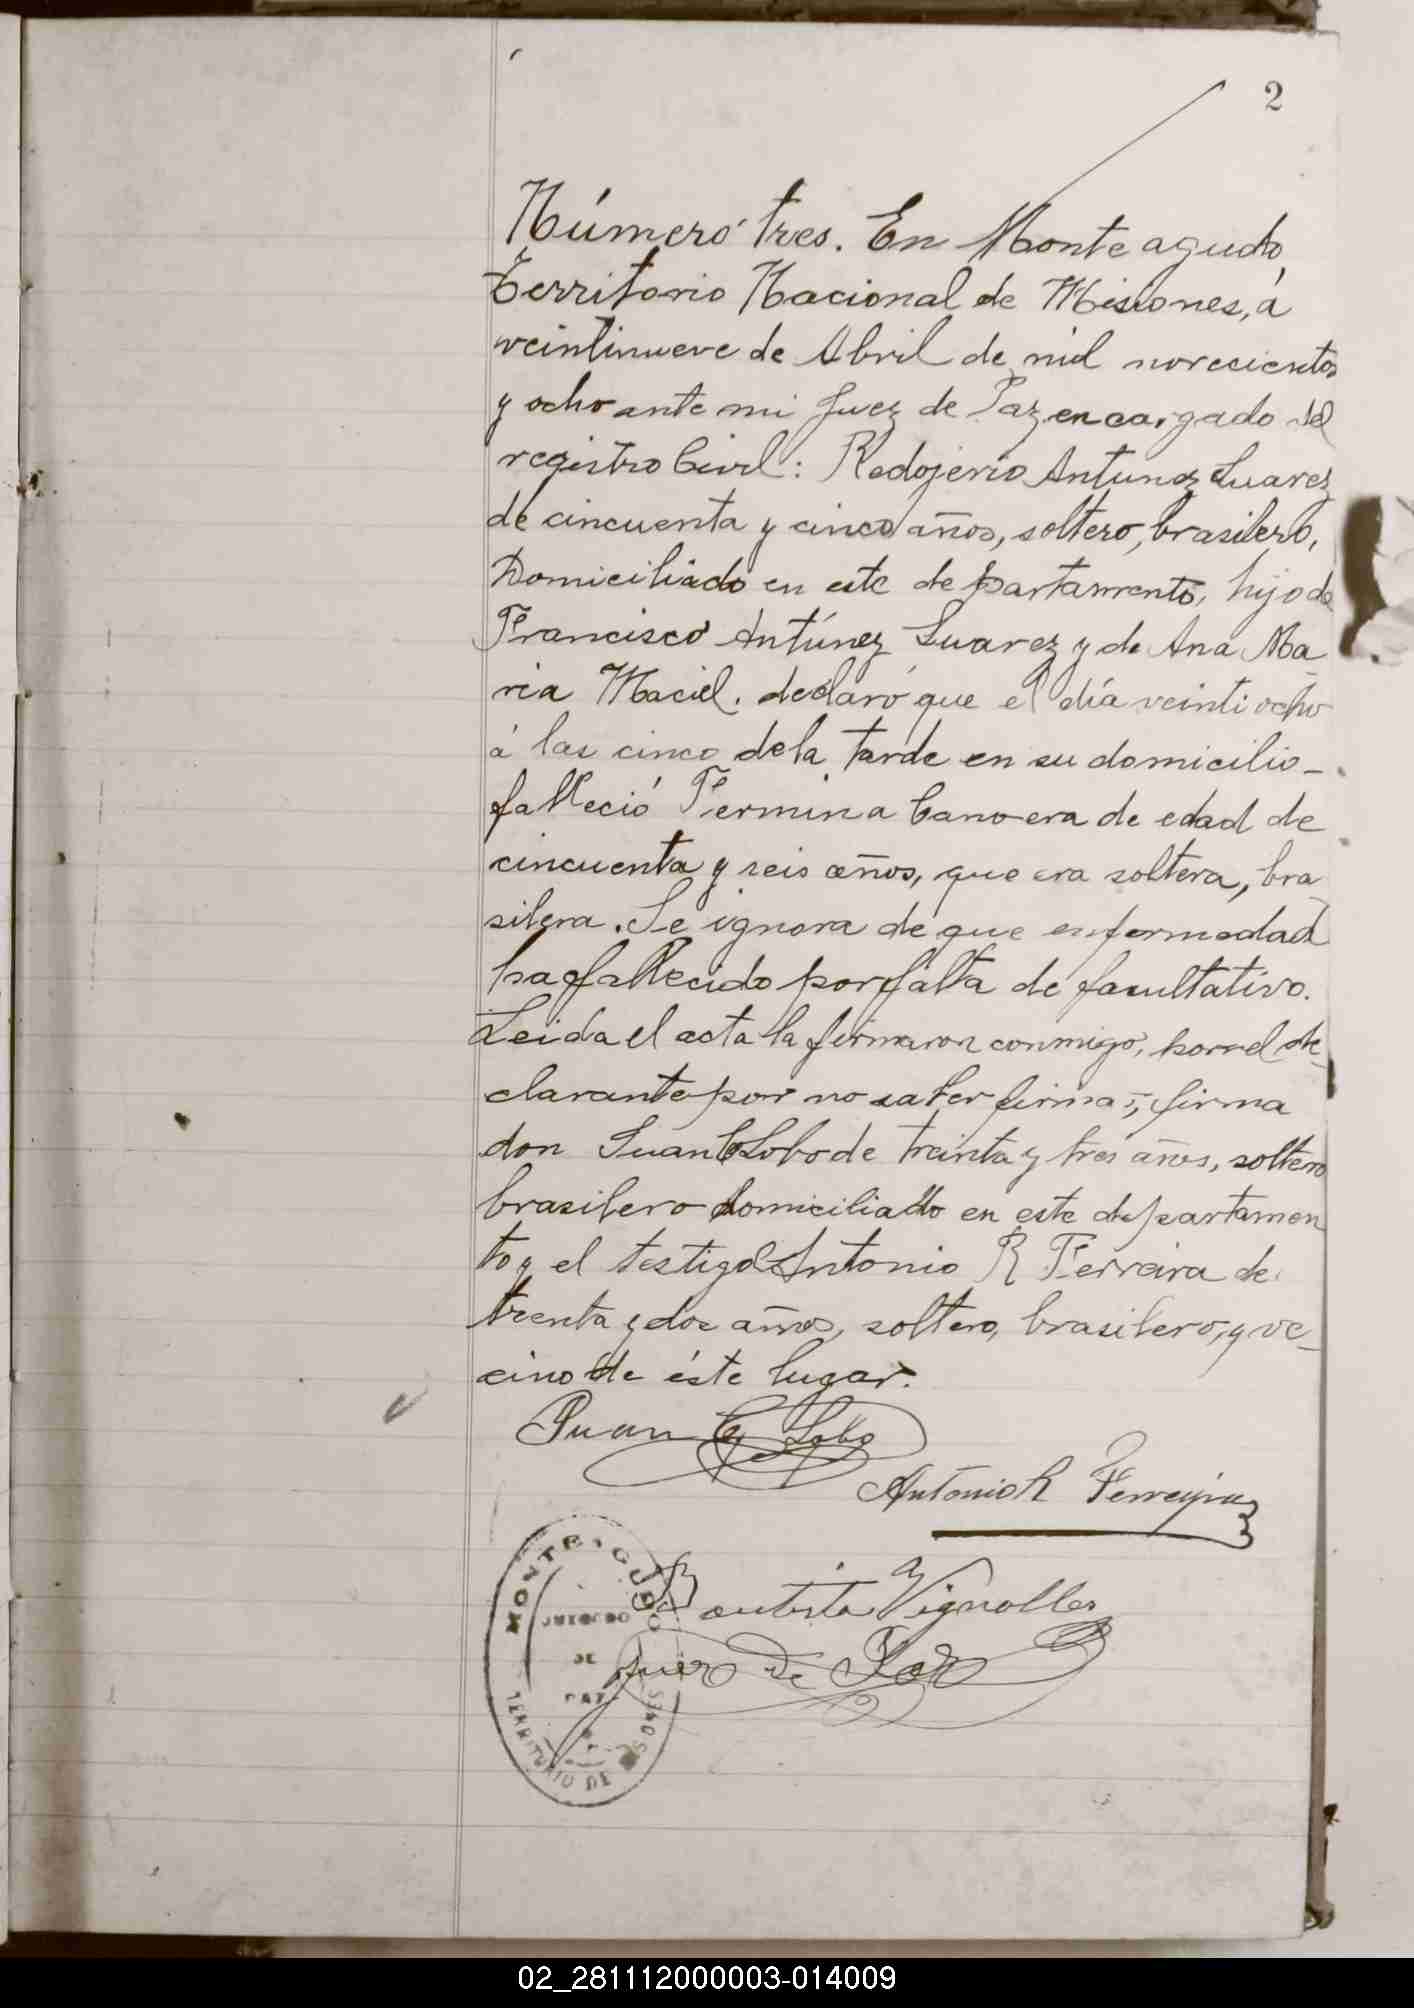 2
Número tres. En Monteagudo
Territorio Nacional de Misiones, á
veintinueve de Abril de mil novecientos
y ocho ante mi Juez de Paz encargado del
registro Civil: Redojerio Antunez Suarez
de cincuenta y cinco años, soltero, brasilero,
Domiciliado en este departamento, hijo de
Francisco Antúnez Suarez y de Ana Ma
ria Maciel. declaró que el día veintiocho
á las cinco de la tarde en su domicilio-
falleció Fermina Canovera de edad de
cincuenta y seis años, que era soltera, bra
silera. Se ignora de que enfermedad
ha fallecido por falta de facultativo.
Leida el acta la firmaron conmigo, por el de
clarante por no saber firmar, firma
don Juan C Lobo de treinta y tres años, soltero
brasilero domiciliado en este departamen
to y el testigo Antonio R Ferreira de
trenta y dos años, soltero, brasilero, y ve-
cino de éste lugar.
Juan C Lobo
Antonio R Ferreyra
Bautista Vignolles
Juez de Paz
MONTEAGUDO
JUZGADO
DE
PAZ
TERRITORIO DE MISIONES
02_281112000003-014009